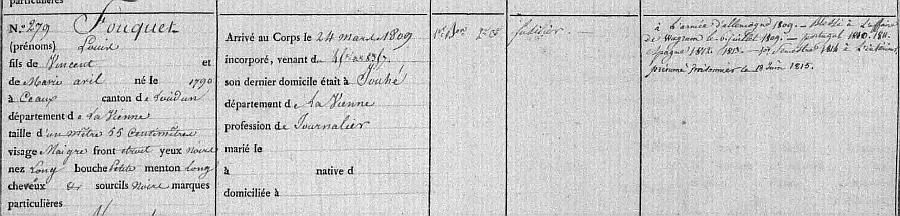 particulières
N.° 279 Fouquet
(prénoms) Louis
fils de Vincent et
de Marie aril né le 1790
à Ceaux canton de Loudun
département de La Vienne
taille d'un mètre 55 centimètres
visage Maigre front étroit yeux noirs
nez Long bouche petite menton Long
cheveux & sourcils noirs marques
particulières
Arrivé au Corps le 24 mars 1809
incorporé, venant de
son dernier domicile était à
département de La Vienne
profession de Journalier
marié le
à native d
domiciliée à
1er Bon
fusilier.
à L'armée d'allemagne 1809. Blessé à L'affaire
de Wagram le 6 juillet 1809. portugal 1810. 1811.
espagne 1812. 1813. 1er semestre 1814 à L'intérieur,
présumé prisonnier le 18 juin 1815.